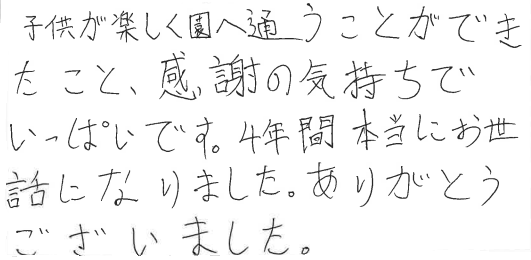 子供が楽しく園へ通うことができ
たこと、感謝の気持ちで
いっぱいです。4年間本当にお世
話になりました。ありがとう
ございました。